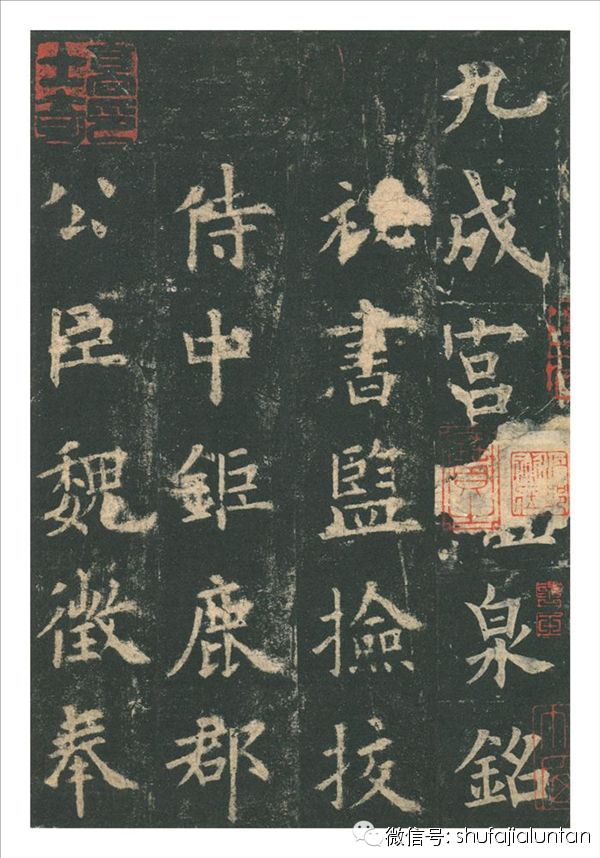 九成宮泉銘
祕書監撿挍
侍中鉅鹿郡
公臣魏徵奉
微信号: shufajialuntan